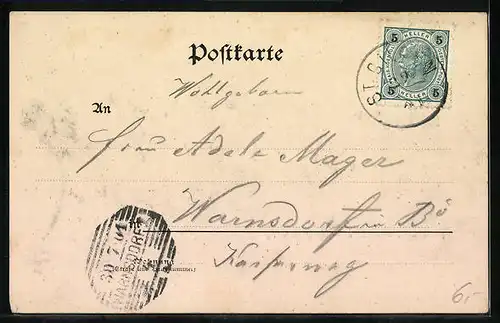 Postkarte
5 HELLER 5
5 HELLER 5
ST. G
Wohlgeboren
An
Frau Adele Mager
Warnsdorf in Bö
Kaiserweg
30 7 01
WARNSDORF
(Straße und Hausnummer)
6.-